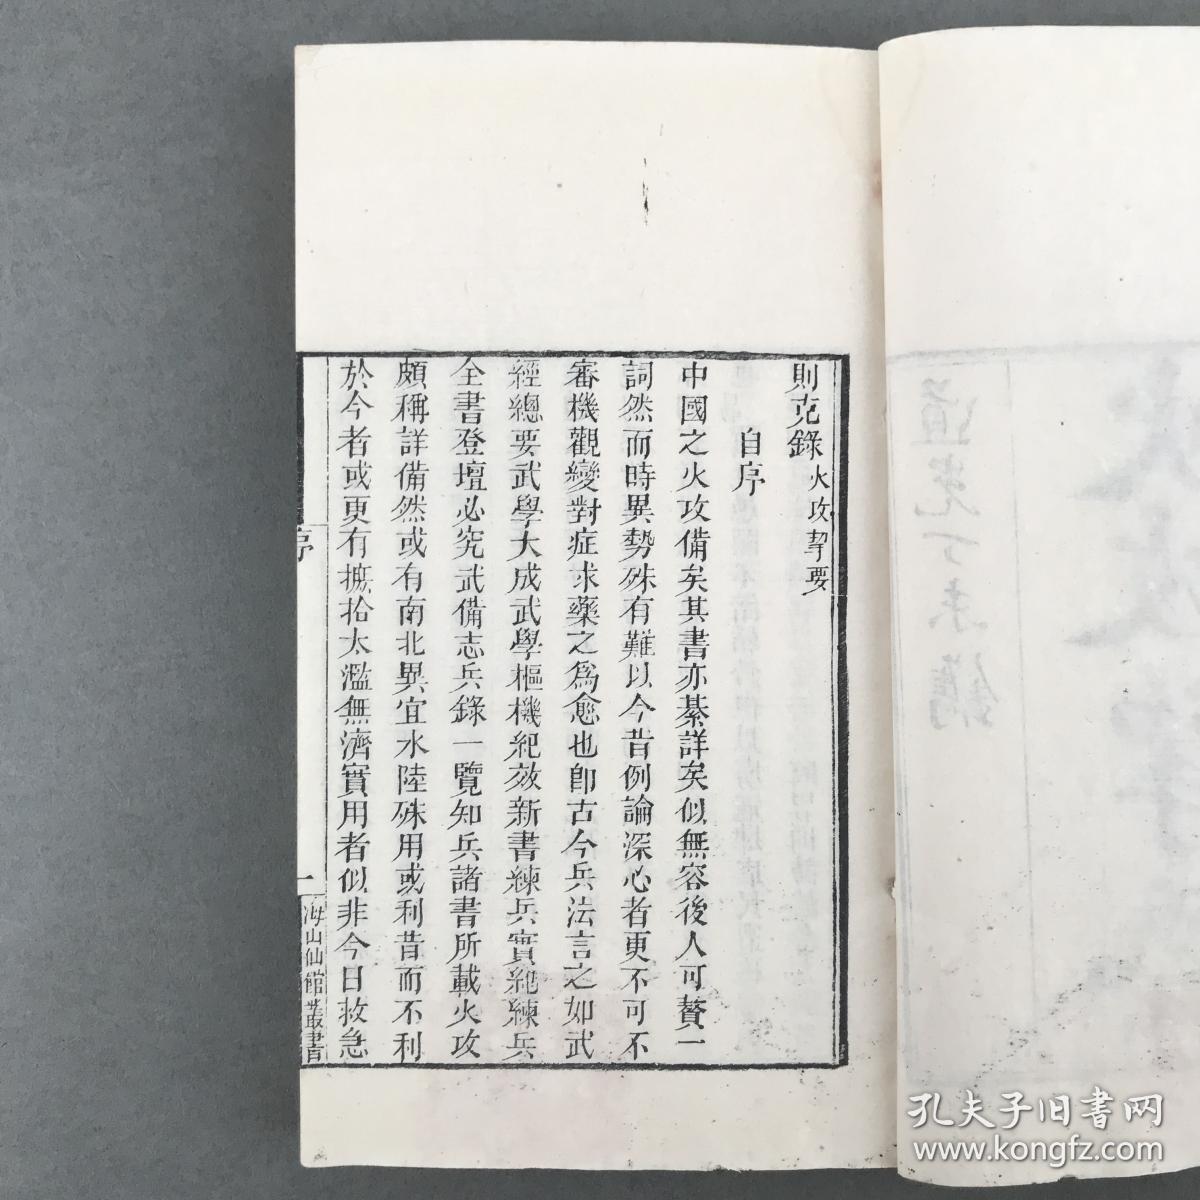 則克錄 火攻挈要
自序
中國之火攻備矣其書亦綦詳矣似無容後人可贅一
詞然而時異勢殊有難以今昔例論深心者更不可不
審機觀變對症求藥之為愈也即古今兵法言之如武
經總要武學大成武學樞機紀效新書練兵實紀練兵
全書登壇必究武備志兵錄一覽知兵諸書所載火攻
頗稱詳備然或有南北異宜水陸殊用或利昔而不利
於今者或更有摭拾太濫無濟實用者似非今日救急
序
一
海山仙館叢書
道光丁未鐫
孔夫子旧书网
www.kongfz.com